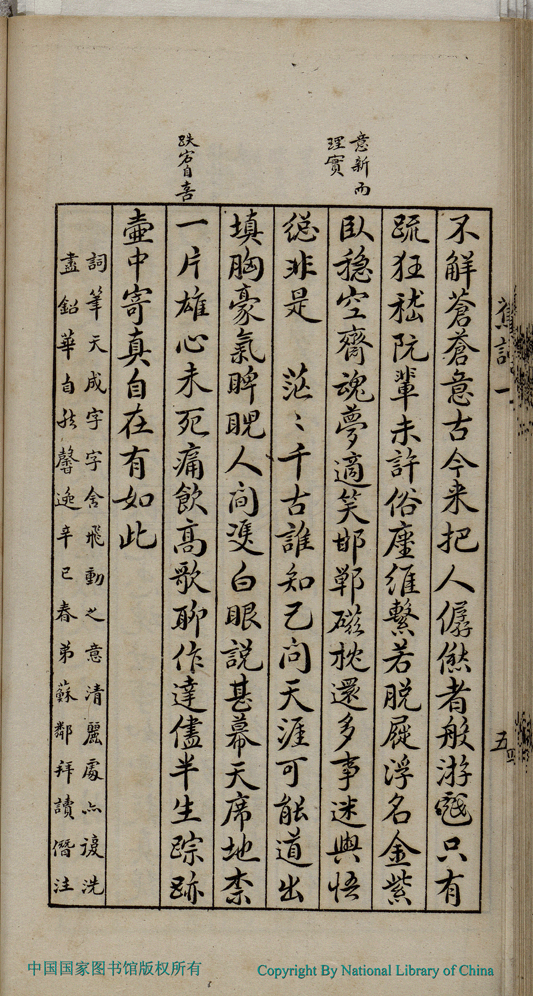 意新而
理實
跌宕自喜
不解蒼蒼意古今来把人僝僽者般游戲只有
疏狂嵇阮輩未許俗塵維繫若脱屣浮名金紫
卧穩空齋魂夢適笑邯鄲磁枕還多事迷與悟
總非是　茫〻千古誰知己问天涯可能道出
填胸豪氣睥睨人间雙白眼説甚幕天席地柰
一片雄心未死痛飲高歌聊作達儘半生踪跡
壷中寄真自在有如此
詞筆天成字字含飛動之意清麗處亦複洗
盡鉛華自然馨逸辛巳春弟蘇鄰拜讀僭注
中国国家图书馆版权所有
Copyright By National Library of China